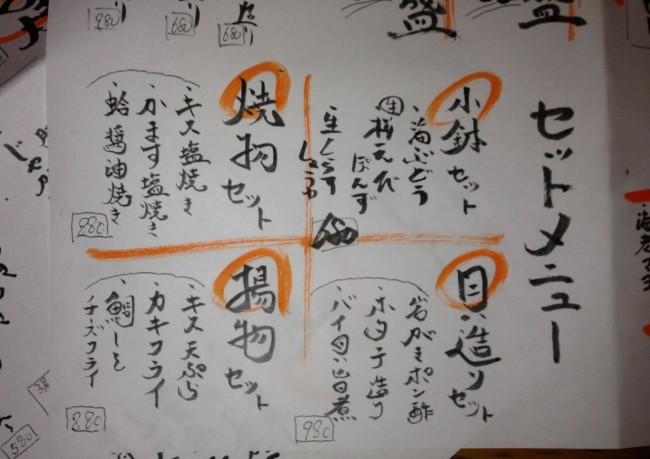 セットメニュー
小鉢セット
・海ぶどう
生桜えび
ぽんず
生しらす
しょうゆ
680
貝造りセット
・岩がきポン酢
・ホタテ造り
・バイ貝旨煮
980
焼物セット
・キス塩焼き
・かます塩焼き
・蛤醤油焼き
980
揚物セット
・キス天ぷら
・カキフライ
・鯛しそ
チーズフライ
880
980
680
680
580
盛
盛